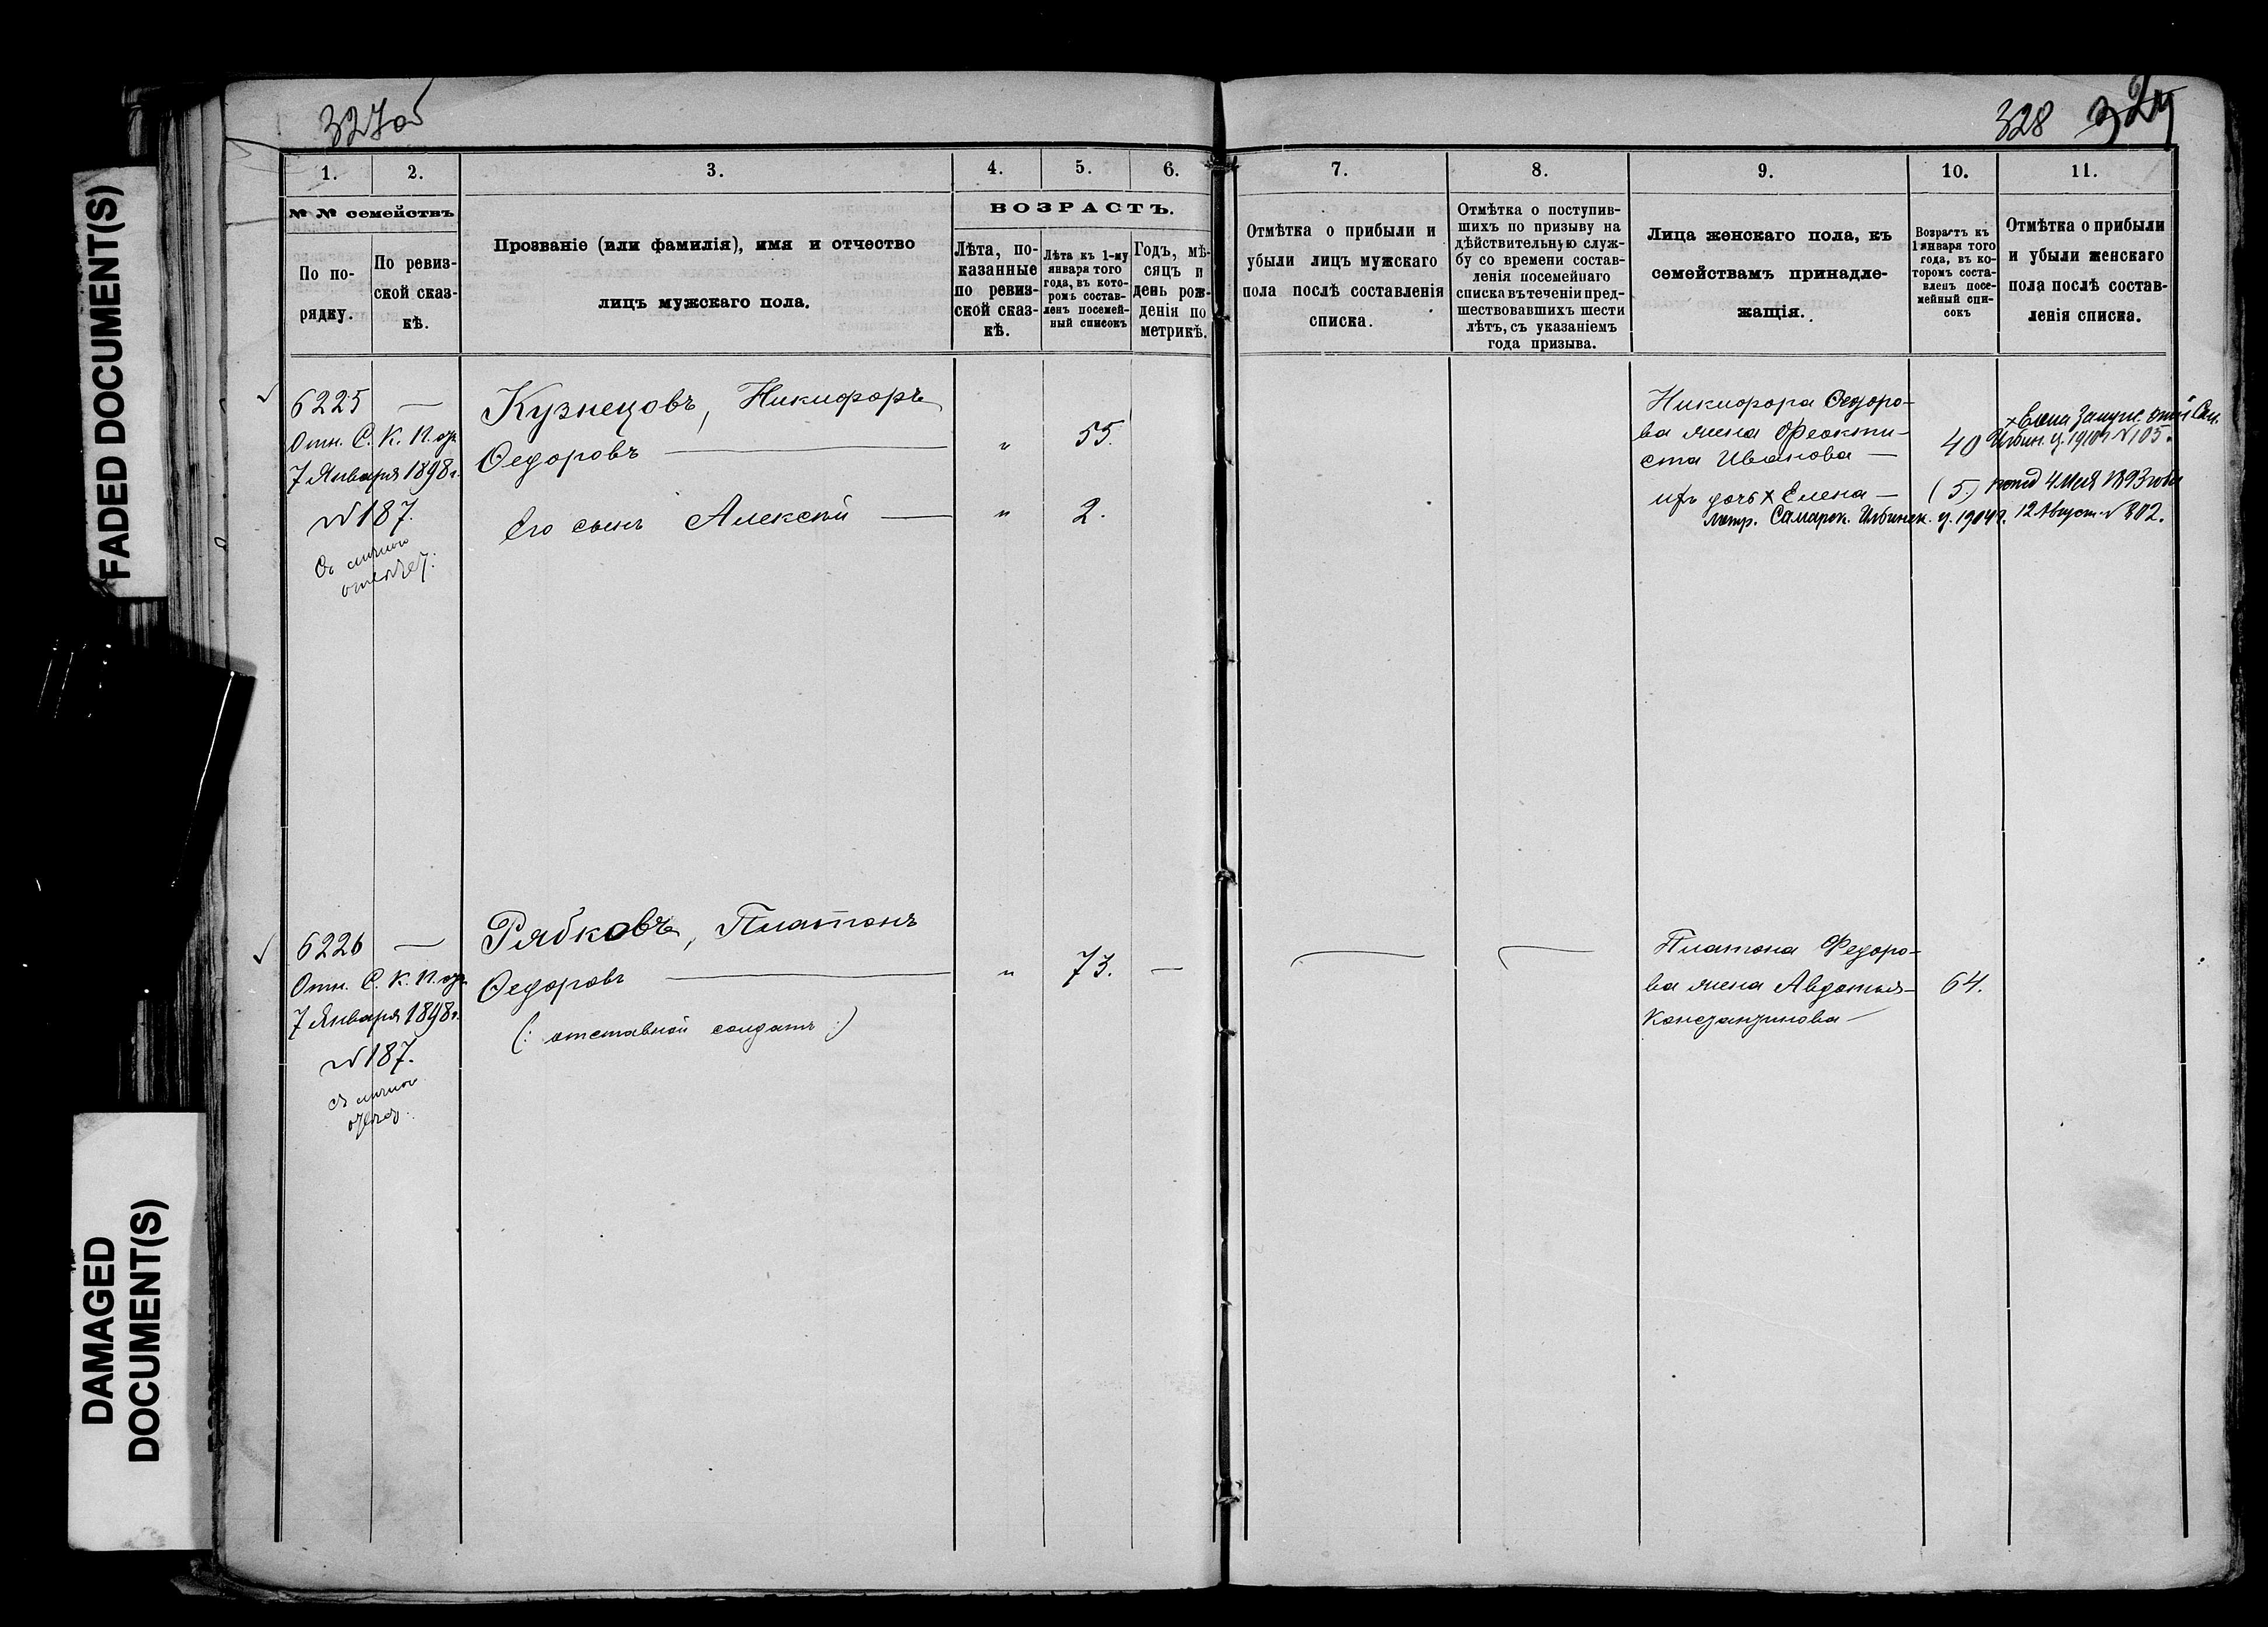 FADED DOCUMENT(S)
DAMAGED
DOCUMENT(S)
327об
328 329
1. 2. 3. 4. 5. 6.
№ № семействъ
По по-
рядку.
По ревиз-
ской сказ-
кѣ.
Прозваніе (или фамилія), имя и отчество
лицъ мужскаго пола.
ВОЗРАСТЪ.
Лѣта, по-
казанные
по ревиз-
ской сказ-
кѣ.
Лѣта къ 1-му
января того
года, въ кото-
ромъ состав-
ленъ посемей-
ный списокъ
Годъ, мѣ-
сяцъ и
день рож-
денія по
метрикѣ.
7. 8. 9. 10. 11.
Отмѣтка о прибыли и
убыли лицъ мужскаго
пола послѣ составленія
списка.
Отмѣтка о поступив-
шихъ по призыву на
дѣйствительную служ-
бу со времени состав-
ленія посемейнаго
списка въ теченіи пред-
шествовавшихъ шести
лѣтъ, съ указаніемъ
года призыва.
Лица женскаго пола, къ
семействамъ принадле-
жащія.
Возрастъ къ
1 января того
года, въ ко-
торомъ соста-
вленъ посе-
мейный спи-
сокъ
Отмѣтка о прибыли
и убыли женскаго
пола послѣ состав-
ленія списка.
6225 —
Отн. С. К. П. отъ
7 Января 1898 г.
№ 187.
Кузнецовъ, Никифоръ
Ѳедоровъ — " 55.
Его сынъ Алексѣй — " 2.
Никифора Ѳедоро-
ва жена Феокти-
ста Иванова — 40
ихъ дочь × Елена — (5)
× Елена Замуж.
Ильин. ц. 1910 г. № 105.
4 Мая 1893 года
метр. Самарск. Ильинск. ц. 1904 г. 12 Август. № 802.
6226 —
Отн. С. К. П. отъ
7 Января 1898 г.
№ 187.
Рябковъ, Платонъ
Ѳедоровъ — " 73. —
(: отставной солдатъ :)
Платона Федоро-
ва жена Авдотья — 64.
Константинова —